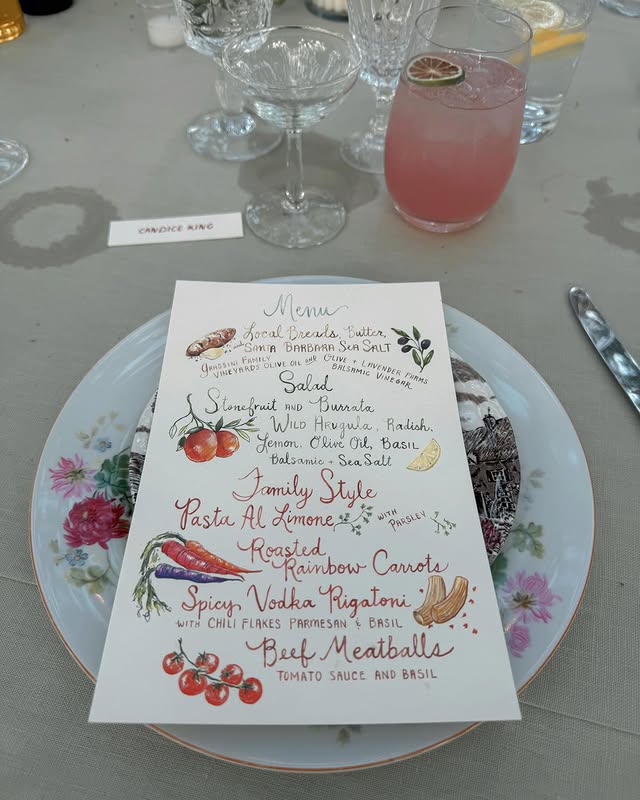 CANDICE KING
Menu
Local Breads, Butter,
and SANTA BARBARA SEA SALT
GRASSINI FAMILY VINEYARDS OLIVE OIL and OLIVE + LAVENDER FARMS BALSAMIC VINEGAR
Salad
Stonefruit AND Burrata
Wild Arugula, Radish,
Lemon, Olive Oil, BASIL
Balsamic + Sea Salt
Family Style
Pasta Al Limone WITH PARSLEY
Roasted
Rainbow Carrots
Spicy Vodka Rigatoni
WITH CHILI FLAKES PARMESAN & BASIL
Beef Meatballs
TOMATO SAUCE AND BASIL